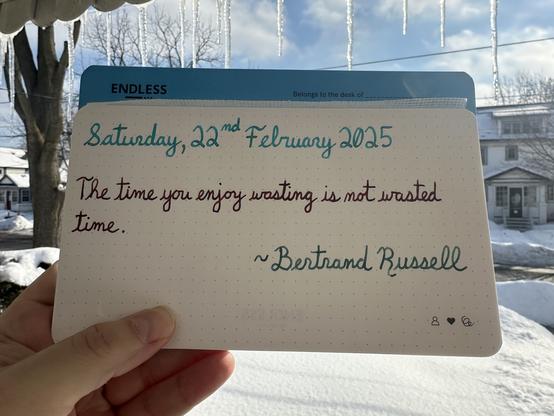 ENDLESS
Belongs to the desk of
Saturday, 22nd February 2025
The time you enjoy wasting is not wasted
time.
~Bertrand Russell